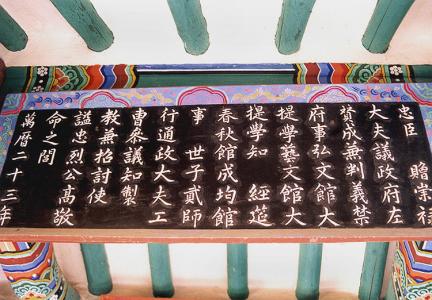 忠臣 贈崇祿
大夫議政府左
贊成兼判義禁
府事弘文館大
提學藝文館大
提學知 經筵
春秋館成均館
事 世子貳師
行通政大夫工
曹參議知製
教兼招討使
諡忠烈公高敬
命之閭
萬曆二十三年